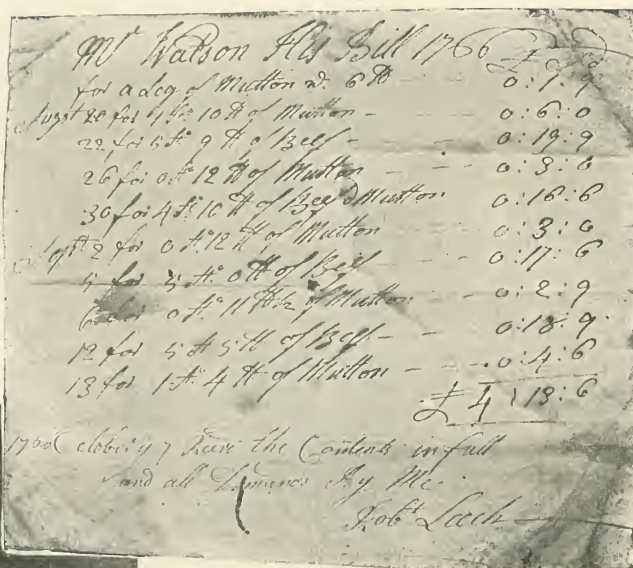 Mr Watson His Bill 1766 £ S D
for a Leg of Mutton wt. 6 ℔ 0:1:9
August 20 for 1 St: 10 ℔ of Mutton - 0:6:0
22 for 5 St 9 ℔ of Beef - 0:19:9
26 for 0 St 12 ℔ of Mutton 0:3:0
30 for 4 St 10 ℔ of Beef & Mutton 0:16:6
Sept 2 for 0 St. 12 ℔ of Mutton 0:3:0
5 for 5 St. 0 ℔ of Beef 0:17:6
6 for 0 St. 11 ℔ ½ of Mutton 0:2:9
12 for 5 St 5 ℔ of Beef - 0:18:9
13 for 1 St. 4 ℔ of Mutton - 0:4:6
£4:13:6
1766 October 7 Recd the Contents in full
and all Demands By Me
Robt Lach